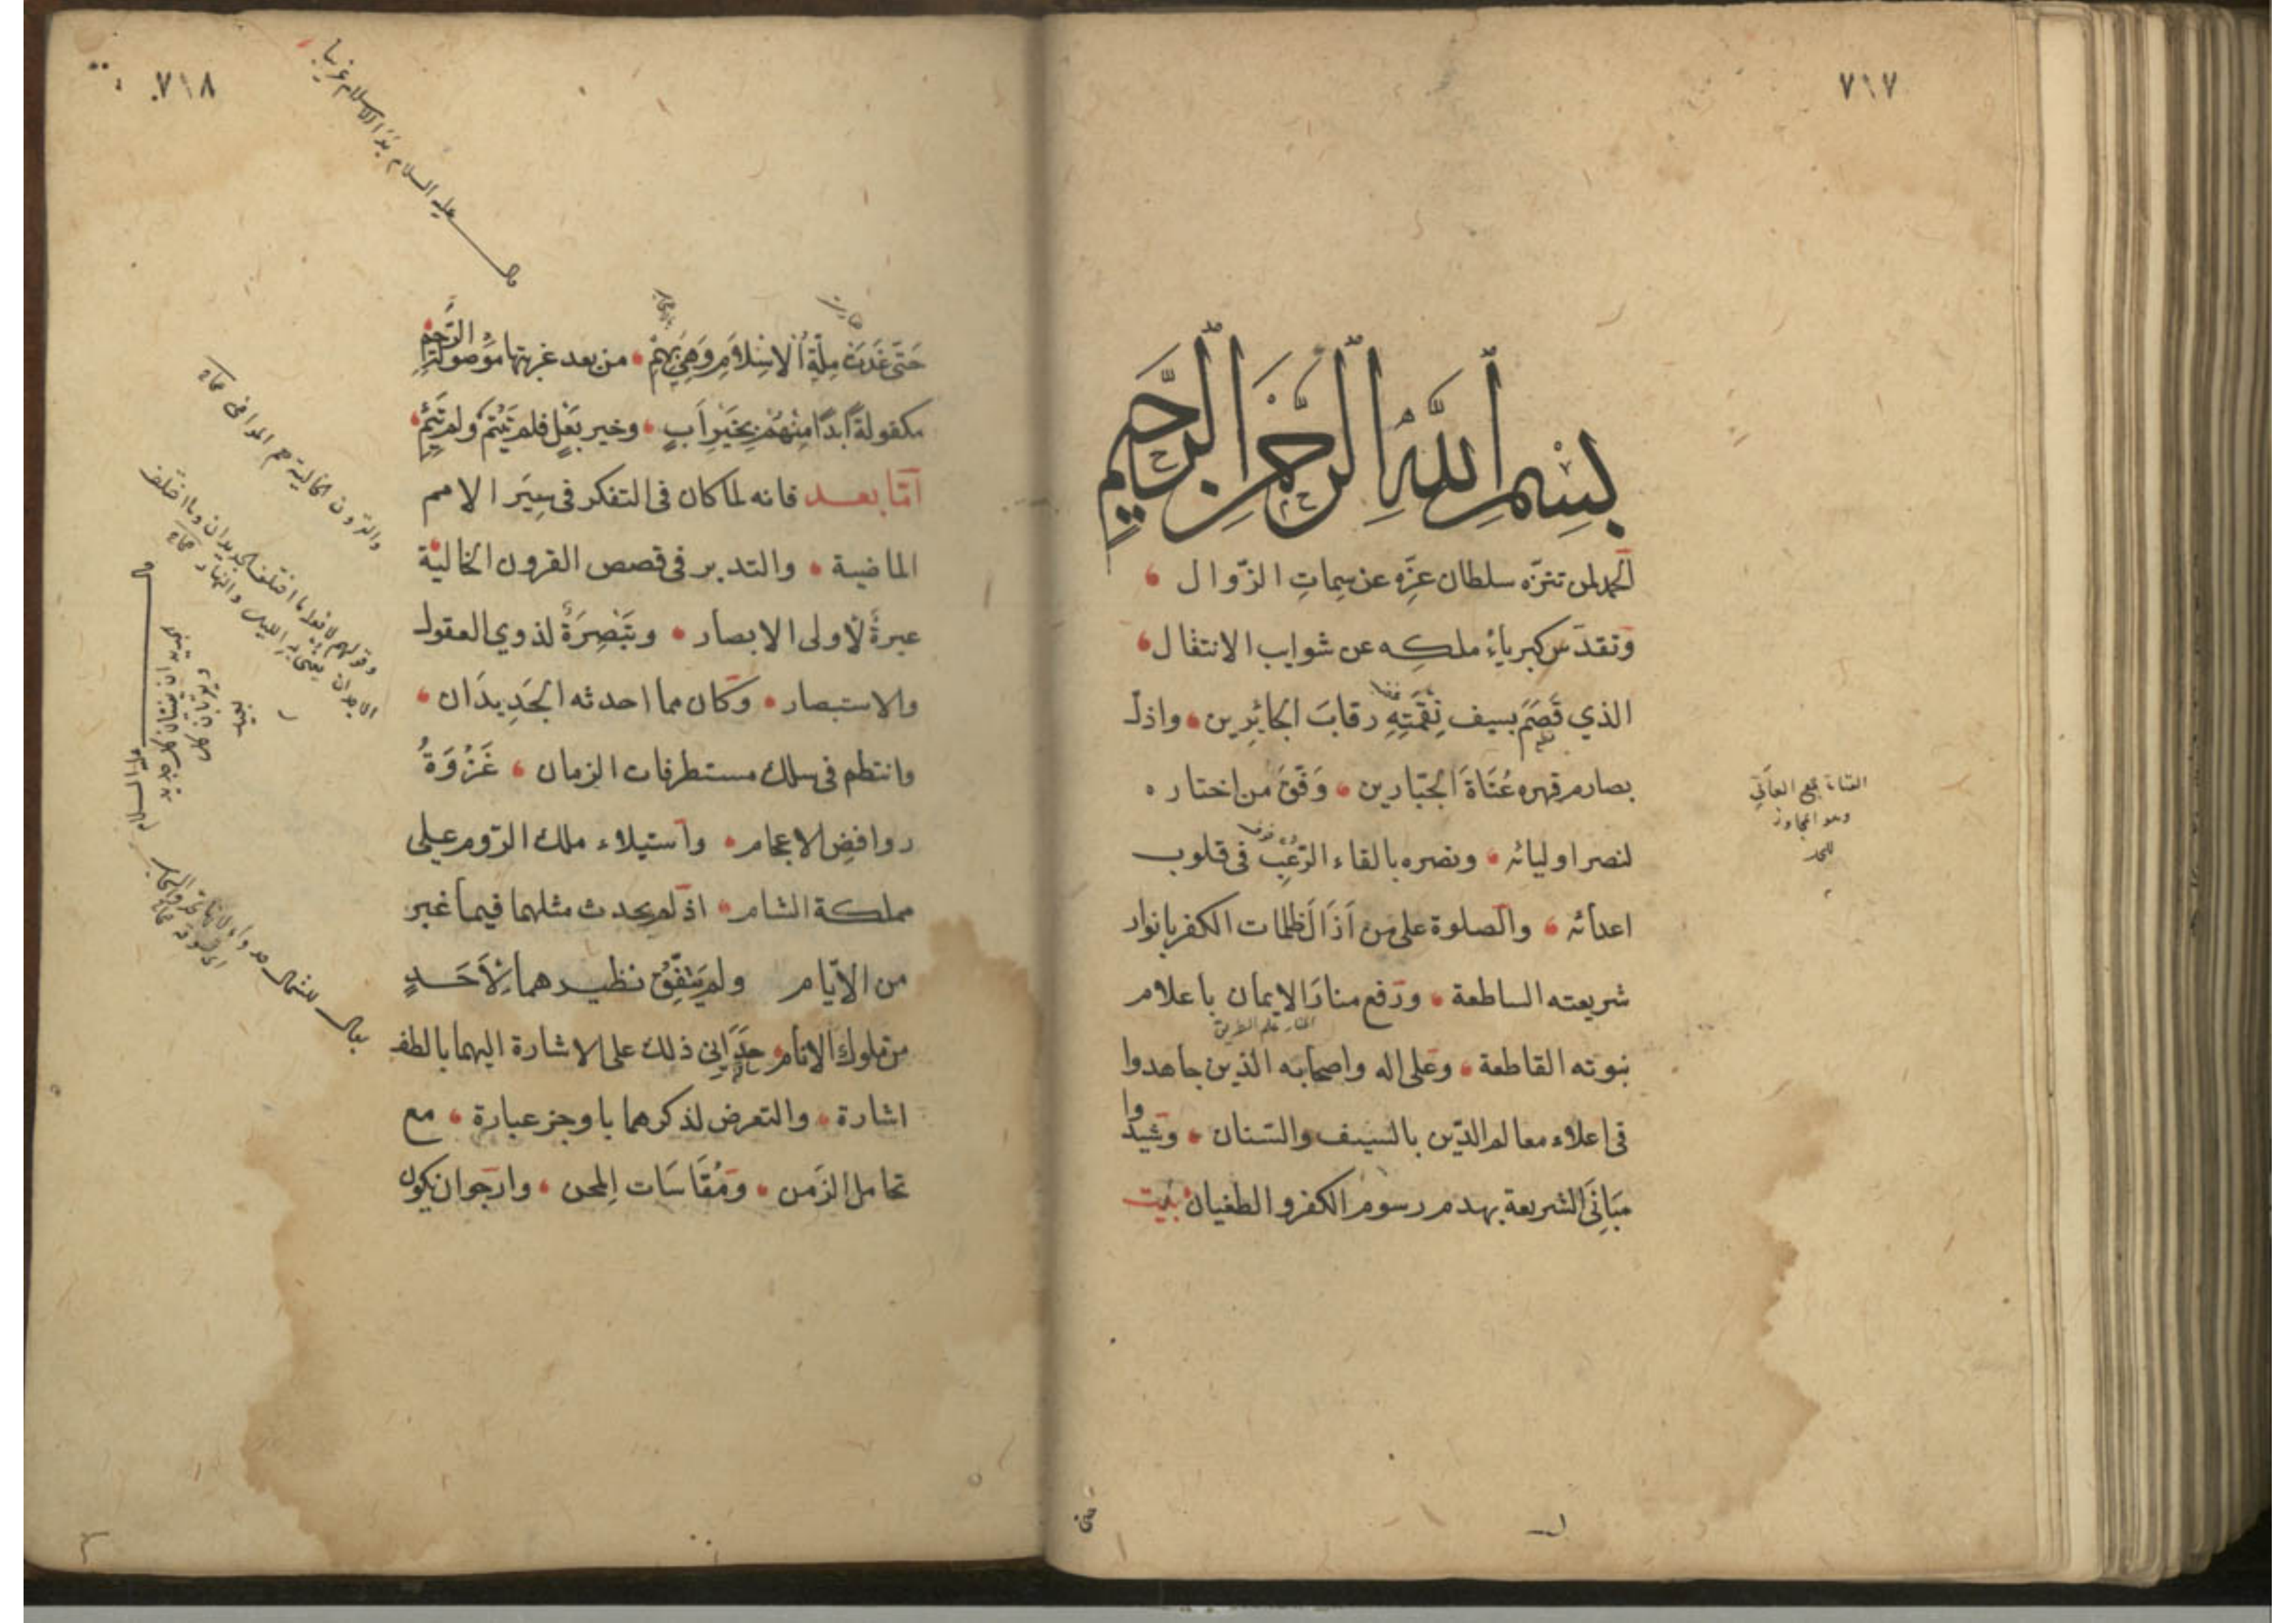 ٧١٧
بِسْمِ اللهِ الرَّحْمٰنِ الرَّحِيمِ
الحمد لمن تنزّه سلطان عزِّه عن سِماتِ الزّوال
وتقدّس كبرياءُ ملكِه عن شوايب الانتقال
الذي قَصَمَ بسيف نِقْمَتِهِ رقابَ الجائِرين واذلّ
بصارم قهره عُتَاةَ الجبّارين وَفّقَ من اختاره
لنصر اوليائه ونصره بالقاء الرّعْبِ فى قلوب
اعدائه والصلوة على من اَزَالَ ظلمات الكفر بانوار
شريعته الساطعة ورفع منارَ الايمان باعلام
المنار علم الطريق
نبوته القاطعة وعلى اله واصحابه الذين جاهدوا
فى اعلاء معالم الدّين بالسّيف والسّنان وشيّدوا
مَبَانِيَ الشريعة بهدم رسوم الكفر والطغيان بيت
العتاة جمع العاتي
وهو المجاوز
للحد
٧١٨
قال عليه السلام بدأ الاسلام غريبا
حَتّى غَدَتْ مِلّةُ الْاِسْلَامِ وَهِيَ بِهِمْ من بعد غربتها مَوْصُولَةَ الرَّحِمِ
مكفولةً اَبَدًا مِنْهُمْ بِخَيْرِ اَبٍ وخير بَعْلٍ فلم تَيْتَمْ ولم تَئِمْ
اَمّا بعد فانه لما كان فى التفكر فى سِيَر الامم
الماضية والتدبر فى قصص القرون الخاليّة
عبرةً لاولى الابصار وتَبْصِرَةً لذوي العقول
والاستبصار وكان مما احدثه الجَدِيدَان
وانتظم فى سلك مستطرفات الزمان غَزْوَةُ
روافضِ الاعجام واستيلاء ملك الرّوم على
مملكة الشام اذ لم يحدث مثلهما فيما غبر
من الايّام ولم يَتّفِقْ نظيرهما لِاَحَدٍ
من ملوك الانام حدَانِي ذلك على الاشارة اليهما بالطف
اشارة والتعرض لذكرهما باوجز عبارة مع
تحامل الزَمن ومُقَاسَات المِحن وارجوا ان يكون
والقرون الخالية هم المواضى صحاح
وقولهم لا افعله ما اختلف الجديدان وما اختلف
الاجدان يعنى به الليل والنهار صحاح